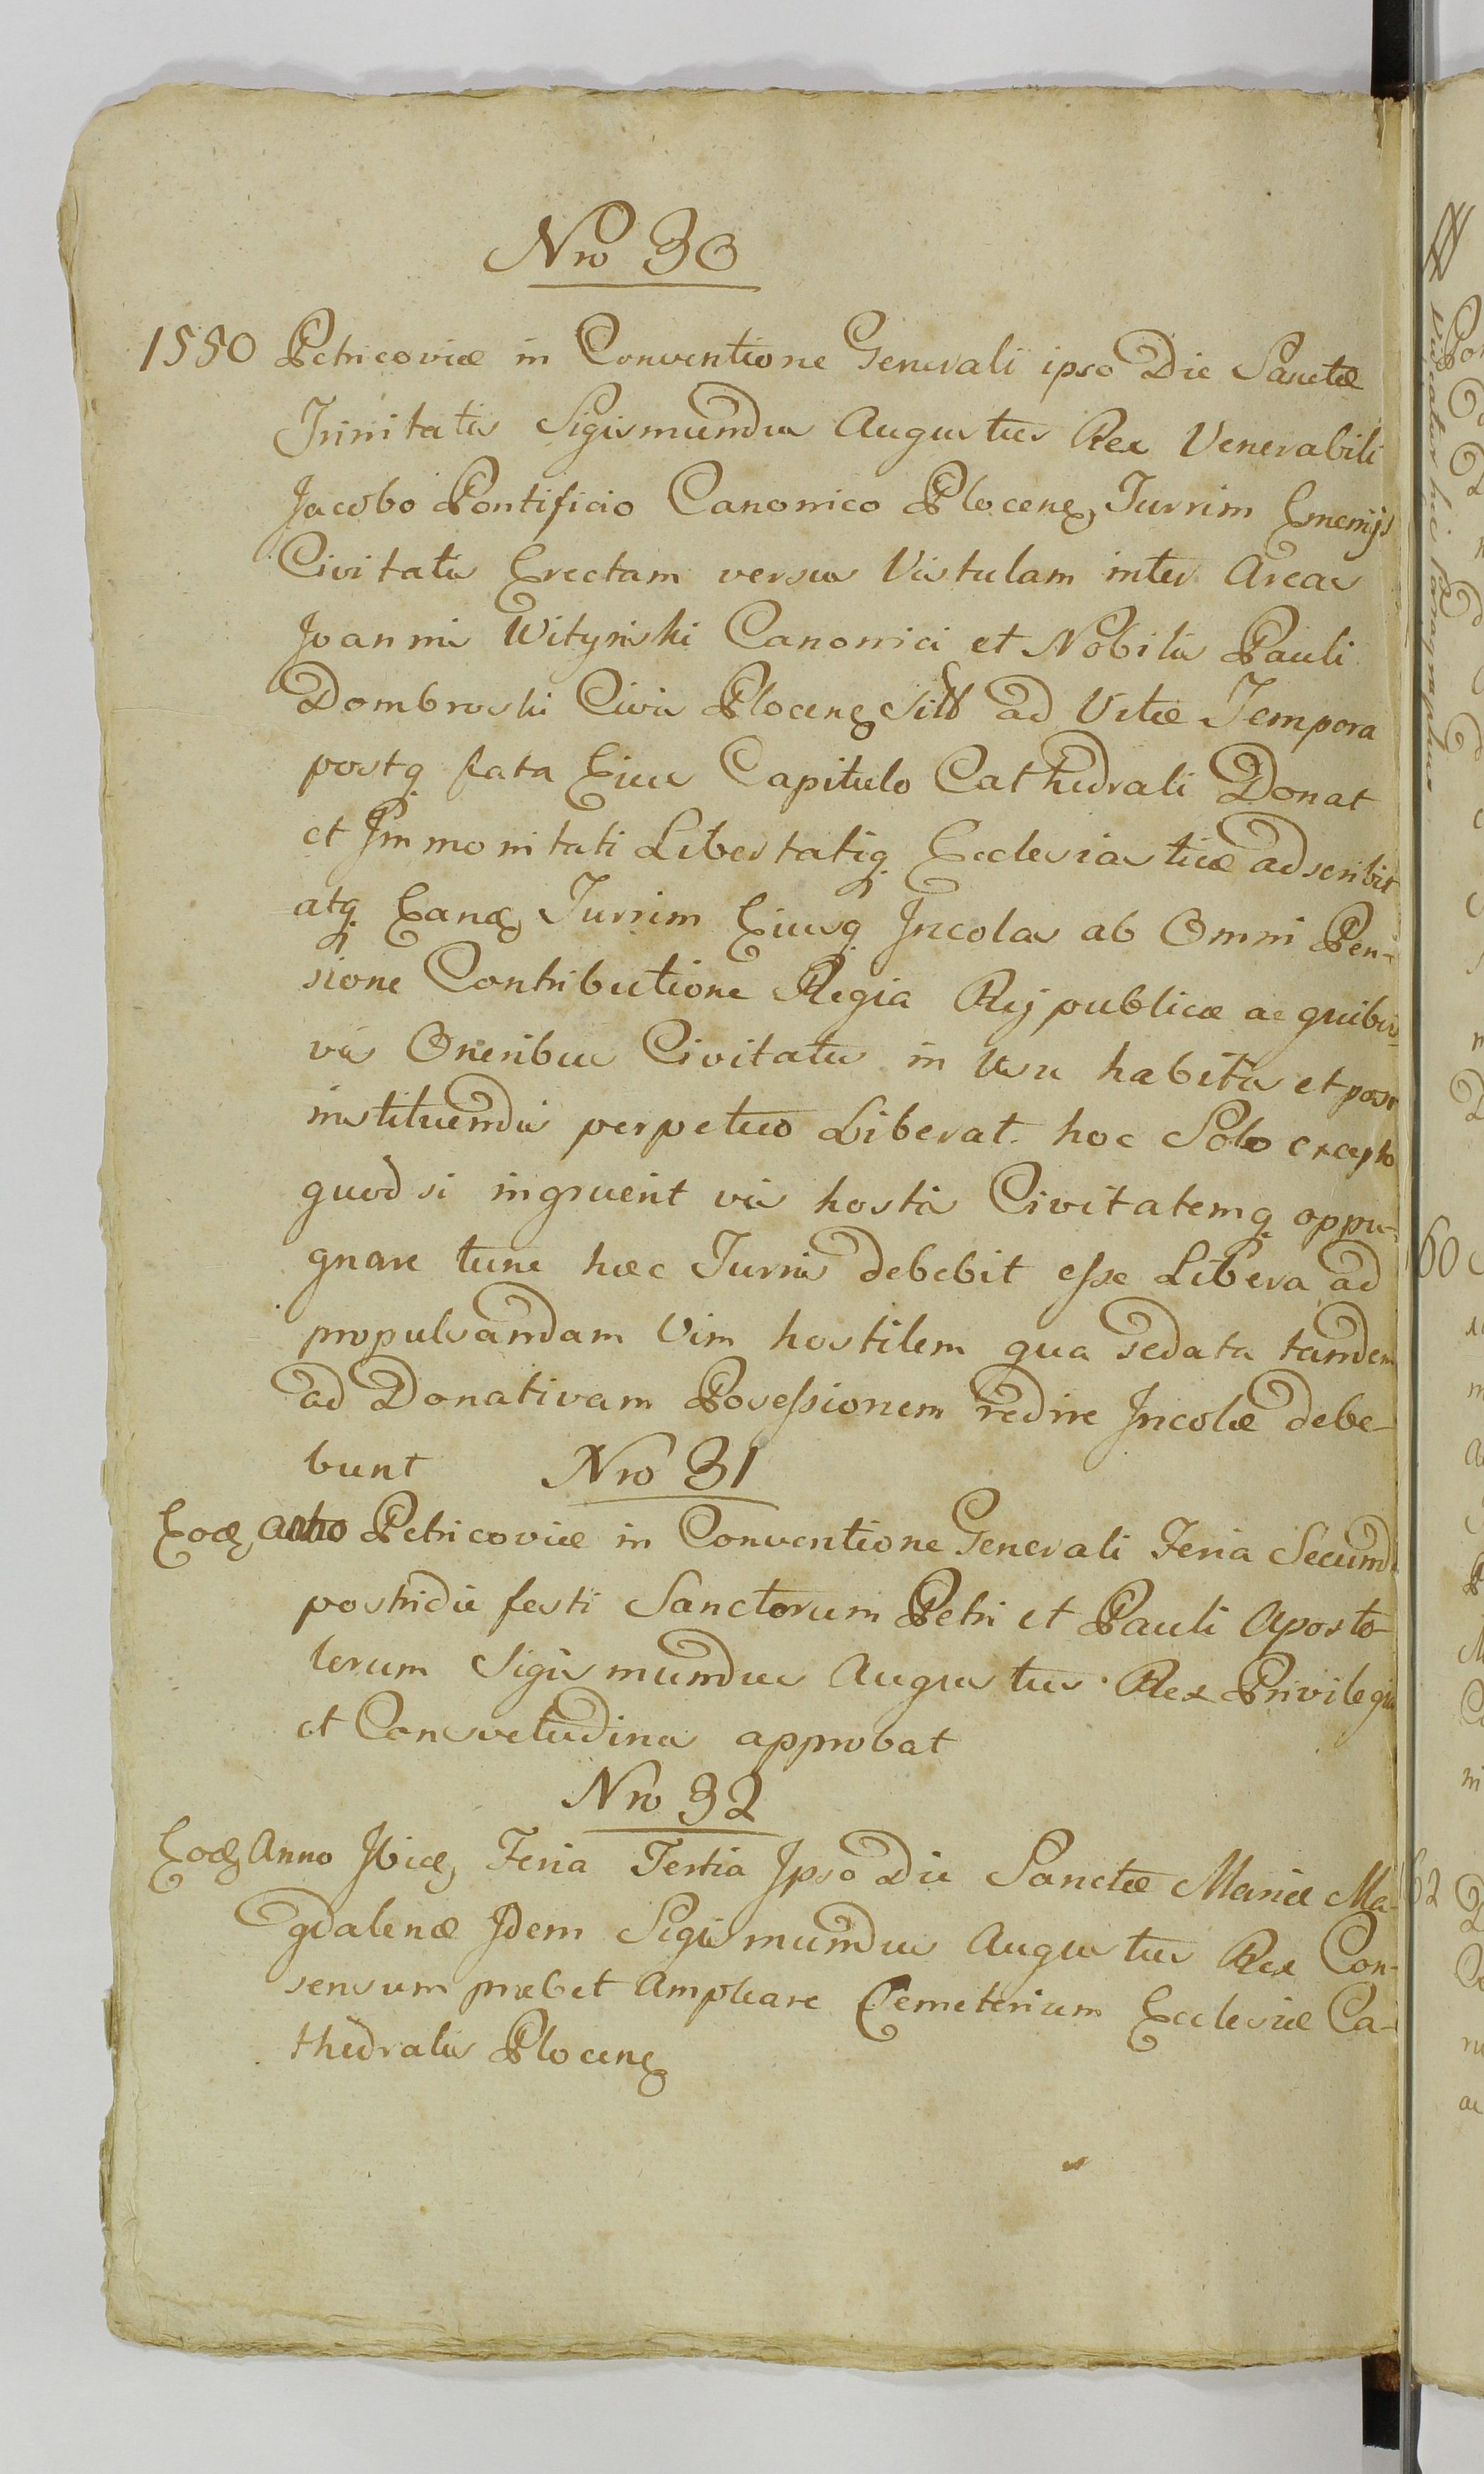 Nro 30
1550 Petricoviæ in Conventione Generali ipso Die Sanctæ
Trinitatis Sigismundus Augustus Rex Venerabili
Jacobo Pontificio Canonico Plocenę Turrim Emenijs
Civitatis Erectam versus Vistulam inter Areas
Joannis Wityński Canonici et Nobilis Pauli
Dombroski Civis Plocenę ad Vitæ Tempora
postq fata Eius Capitulo Cathedrali Donat
et Immonitati Libertatiq Ecclesiasticæ adscribit
atq Eandę Turrim Eiusq Incolas ab Omni Pen-
sione Contributione Regia Rijpublicæ ac quibus-
vis Oneribus Civitatis in Usu habitis et post
instituendis perpetuo Liberat. hoc Solo excepto
quod si ingruerit vis hostis Civitatemq oppu-
gnare tunc hæc Turris debebit esse Libera ad
propulsandam Vim hostilem qua sedata tandem
ad Donativam Possessionem redire Incolæ debe-
bunt
Nro 31
Eodę anno Petricoviæ in Conventione Generali Feria Secunda
postridie festi Sanctorum Petri et Pauli Aposto-
lorum Sigismundus Augustus Rex Privilegia
et Consvetudines approbat
Nro 32
Eodę Anno Ibidę Feria Tertia Ipso Die Sanctæ Mariæ Ma-
gdalenæ Idem Sigismundus Augustus Rex Con-
sensum præbet Ampleare Cemeterium Ecclesiæ Ca-
thedralis Plocenę